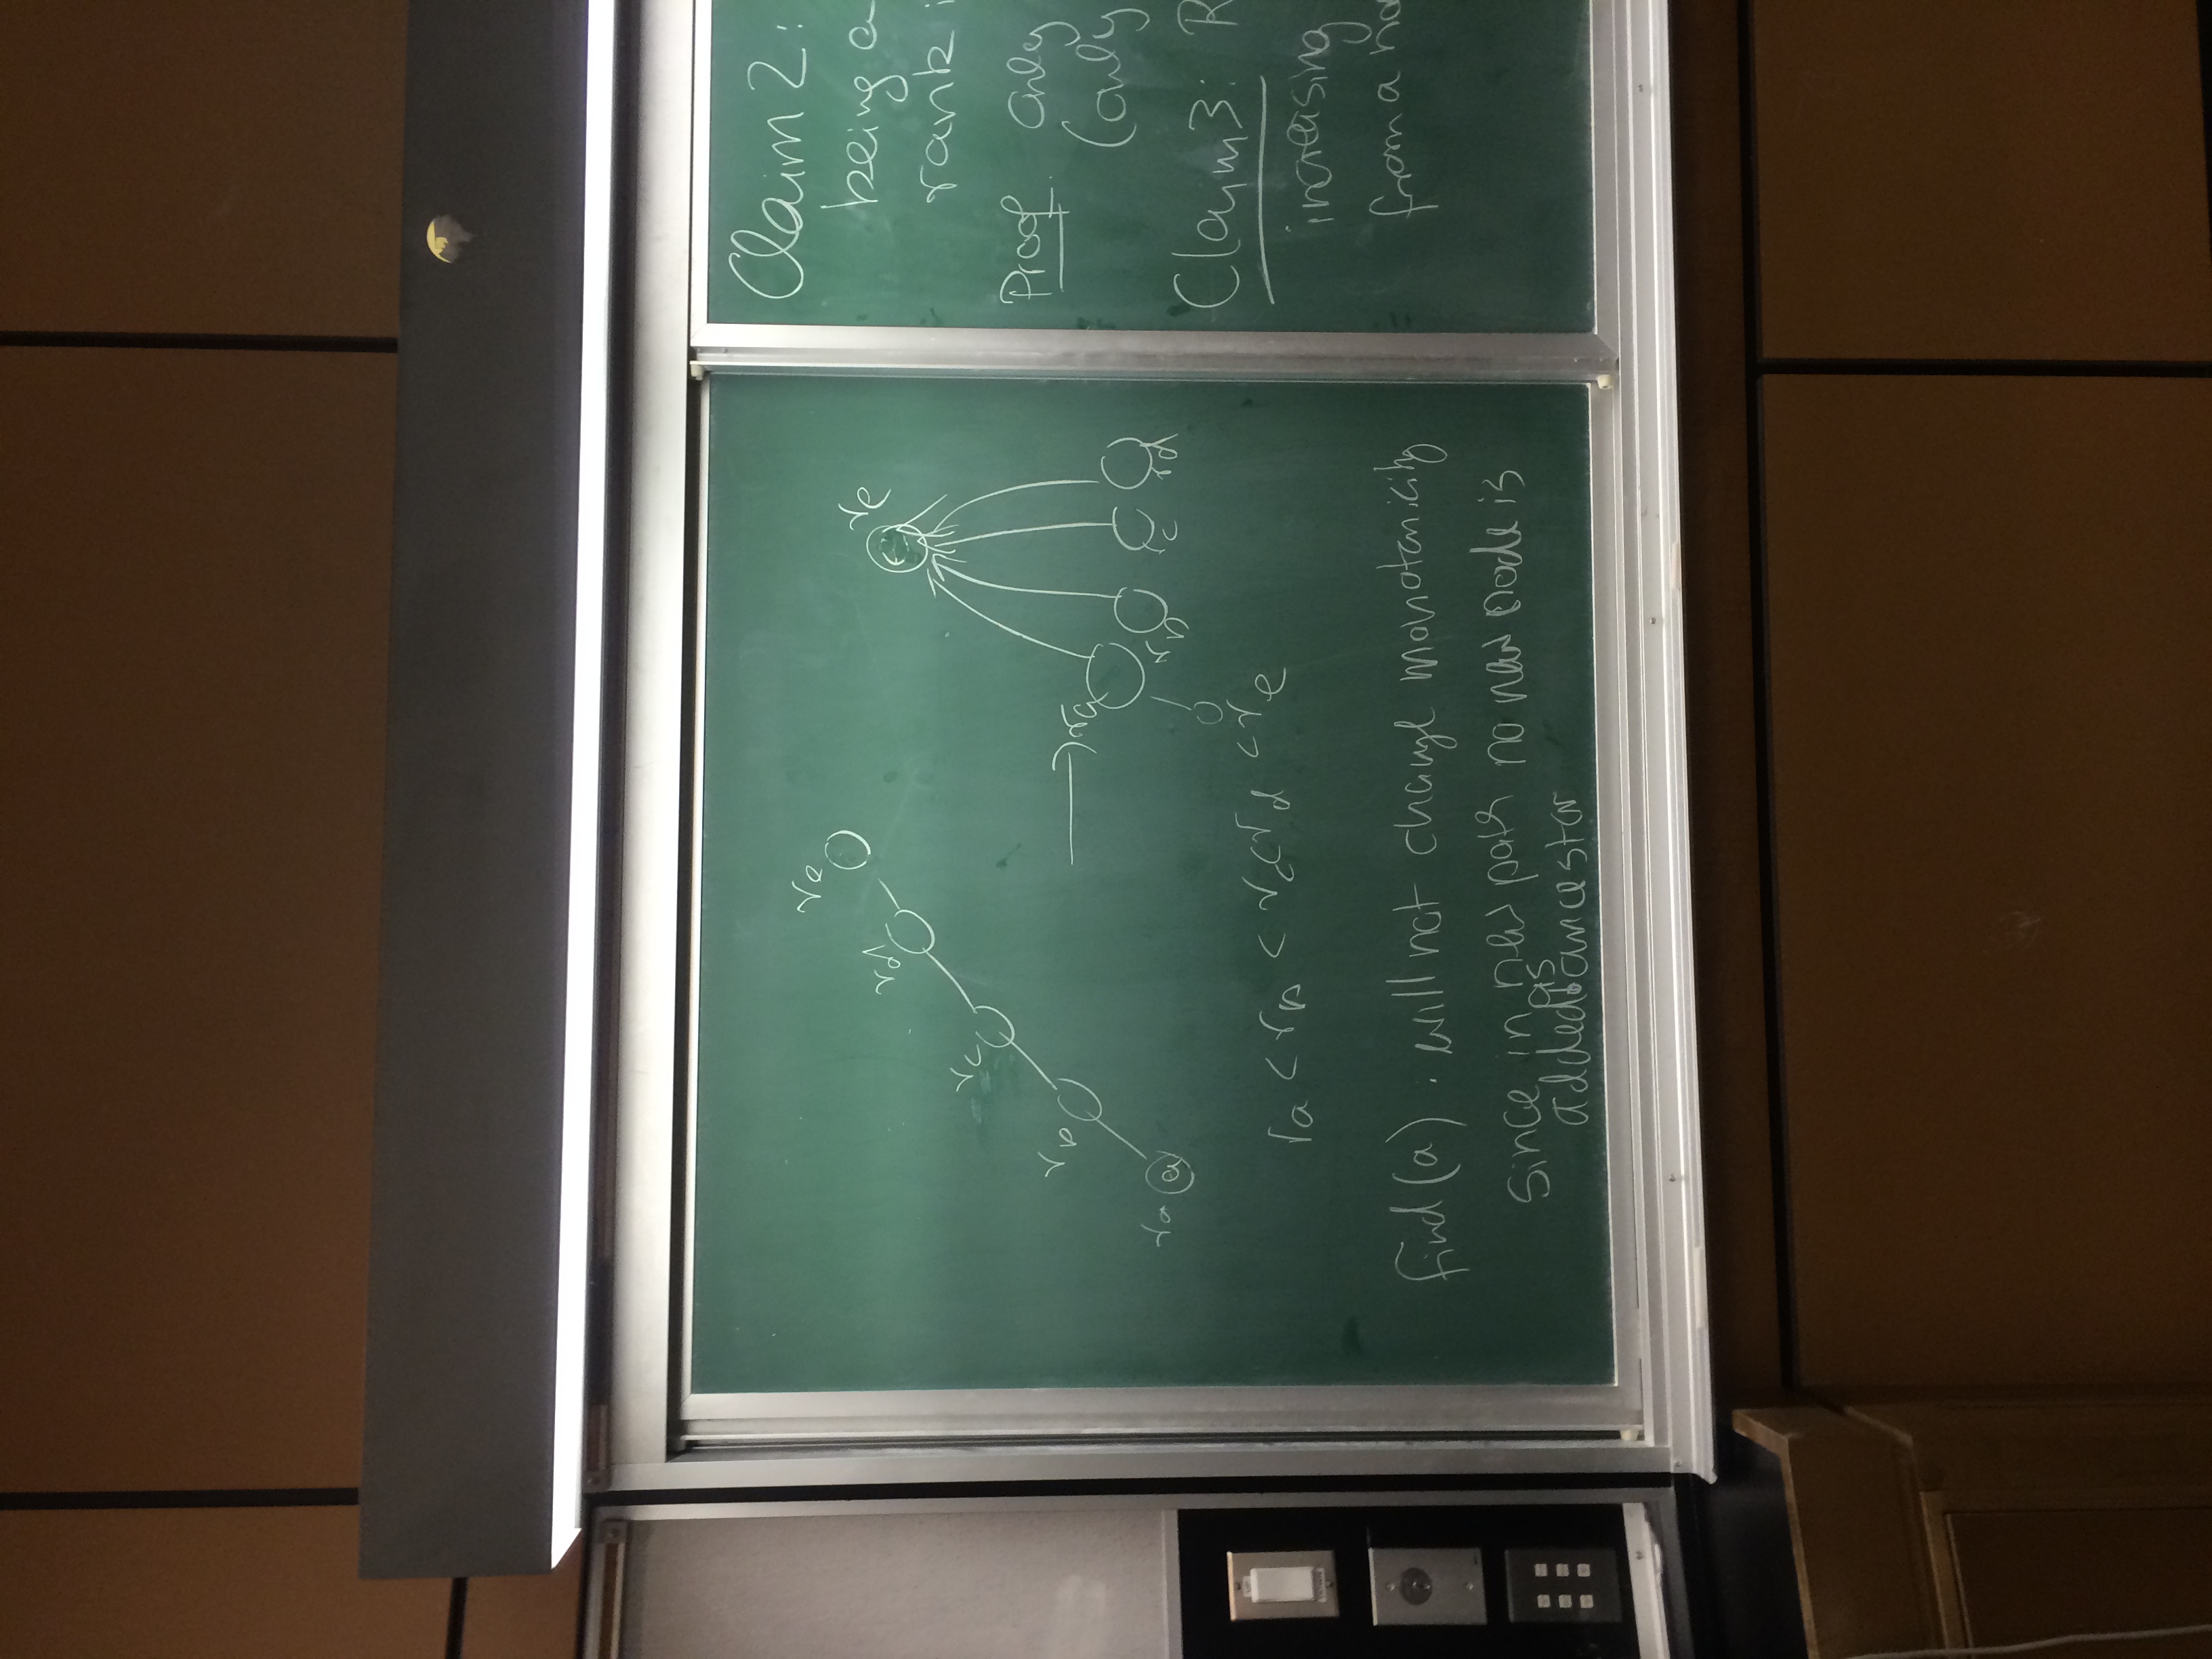 re
rd
rc
rb
ra a
re
e
ra
rb c rd
rc
ra < rb < rc < rd < re
find(a). will not change monotonicity
since in new path no new node is
as
added ancestor
Claim 2:
being a
rank i
Proof. Only
(only
Claim 3: R
increasing
from a no